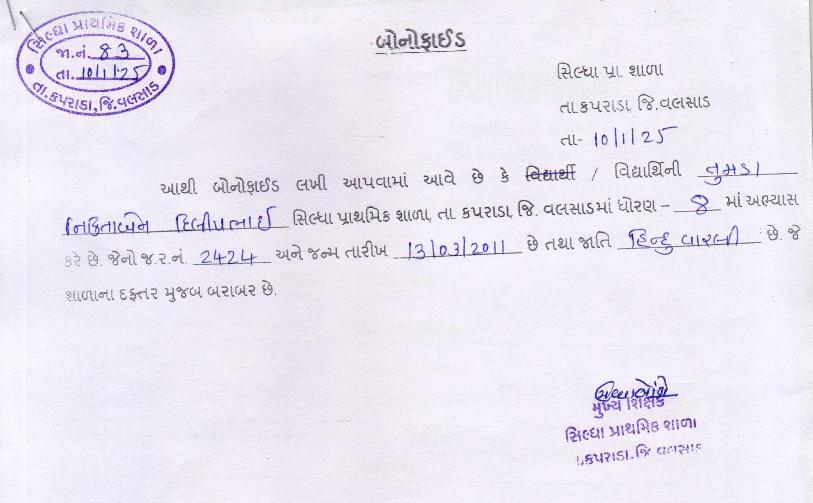 સિલ્ધા પ્રાથમિક શાળા
જા.નં. 83
તા. 10/1/25
તા. કપરાડા, જિ. વલસાડ
બોનોફાઈડ
સિલ્ધા પ્રા. શાળા
તા કપરાડા, જિ. વલસાડ
તા- 10/1/25
આથી બોનોફાઈડ લખી આપવામાં આવે છે કે વિદ્યાર્થી / વિદ્યાર્થિની તુમડા
નિકિતાબેન દિલીપભાઈ સિલ્ધા પ્રાથમિક શાળા, તા. કપરાડા, જિ. વલસાડમાં ધોરણ – 8 માં અભ્યાસ
કરે છે. જેનો જ.ર.નં. 2424 અને જન્મ તારીખ 13/03/2011 છે તથા જાતિ હિન્દુ વારલી છે. જે
શાળાના દફતર મુજબ બરાબર છે.
મુખ્ય શિક્ષક
સિલ્ધા પ્રાથમિક શાળા
કપરાડા. જિ વલસાડ